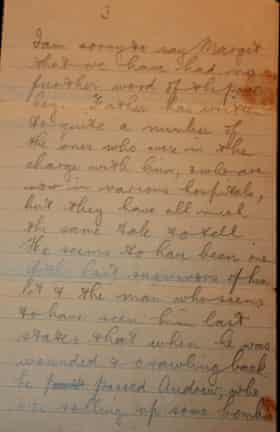 3
I am sorry to say Margit
that we have had no
further word of the poor
boy. Father has written
to quite a number of
the ones who were in the
charge with him, & who are
now in various hospitals,
but they have all much
the same tale to tell.
He seems to have been one
of the last survivors of his
lot & the man who seems
to have seen him last
states that when he was
wounded & crawling back
he passed Andrew, who
was setting up some bombs